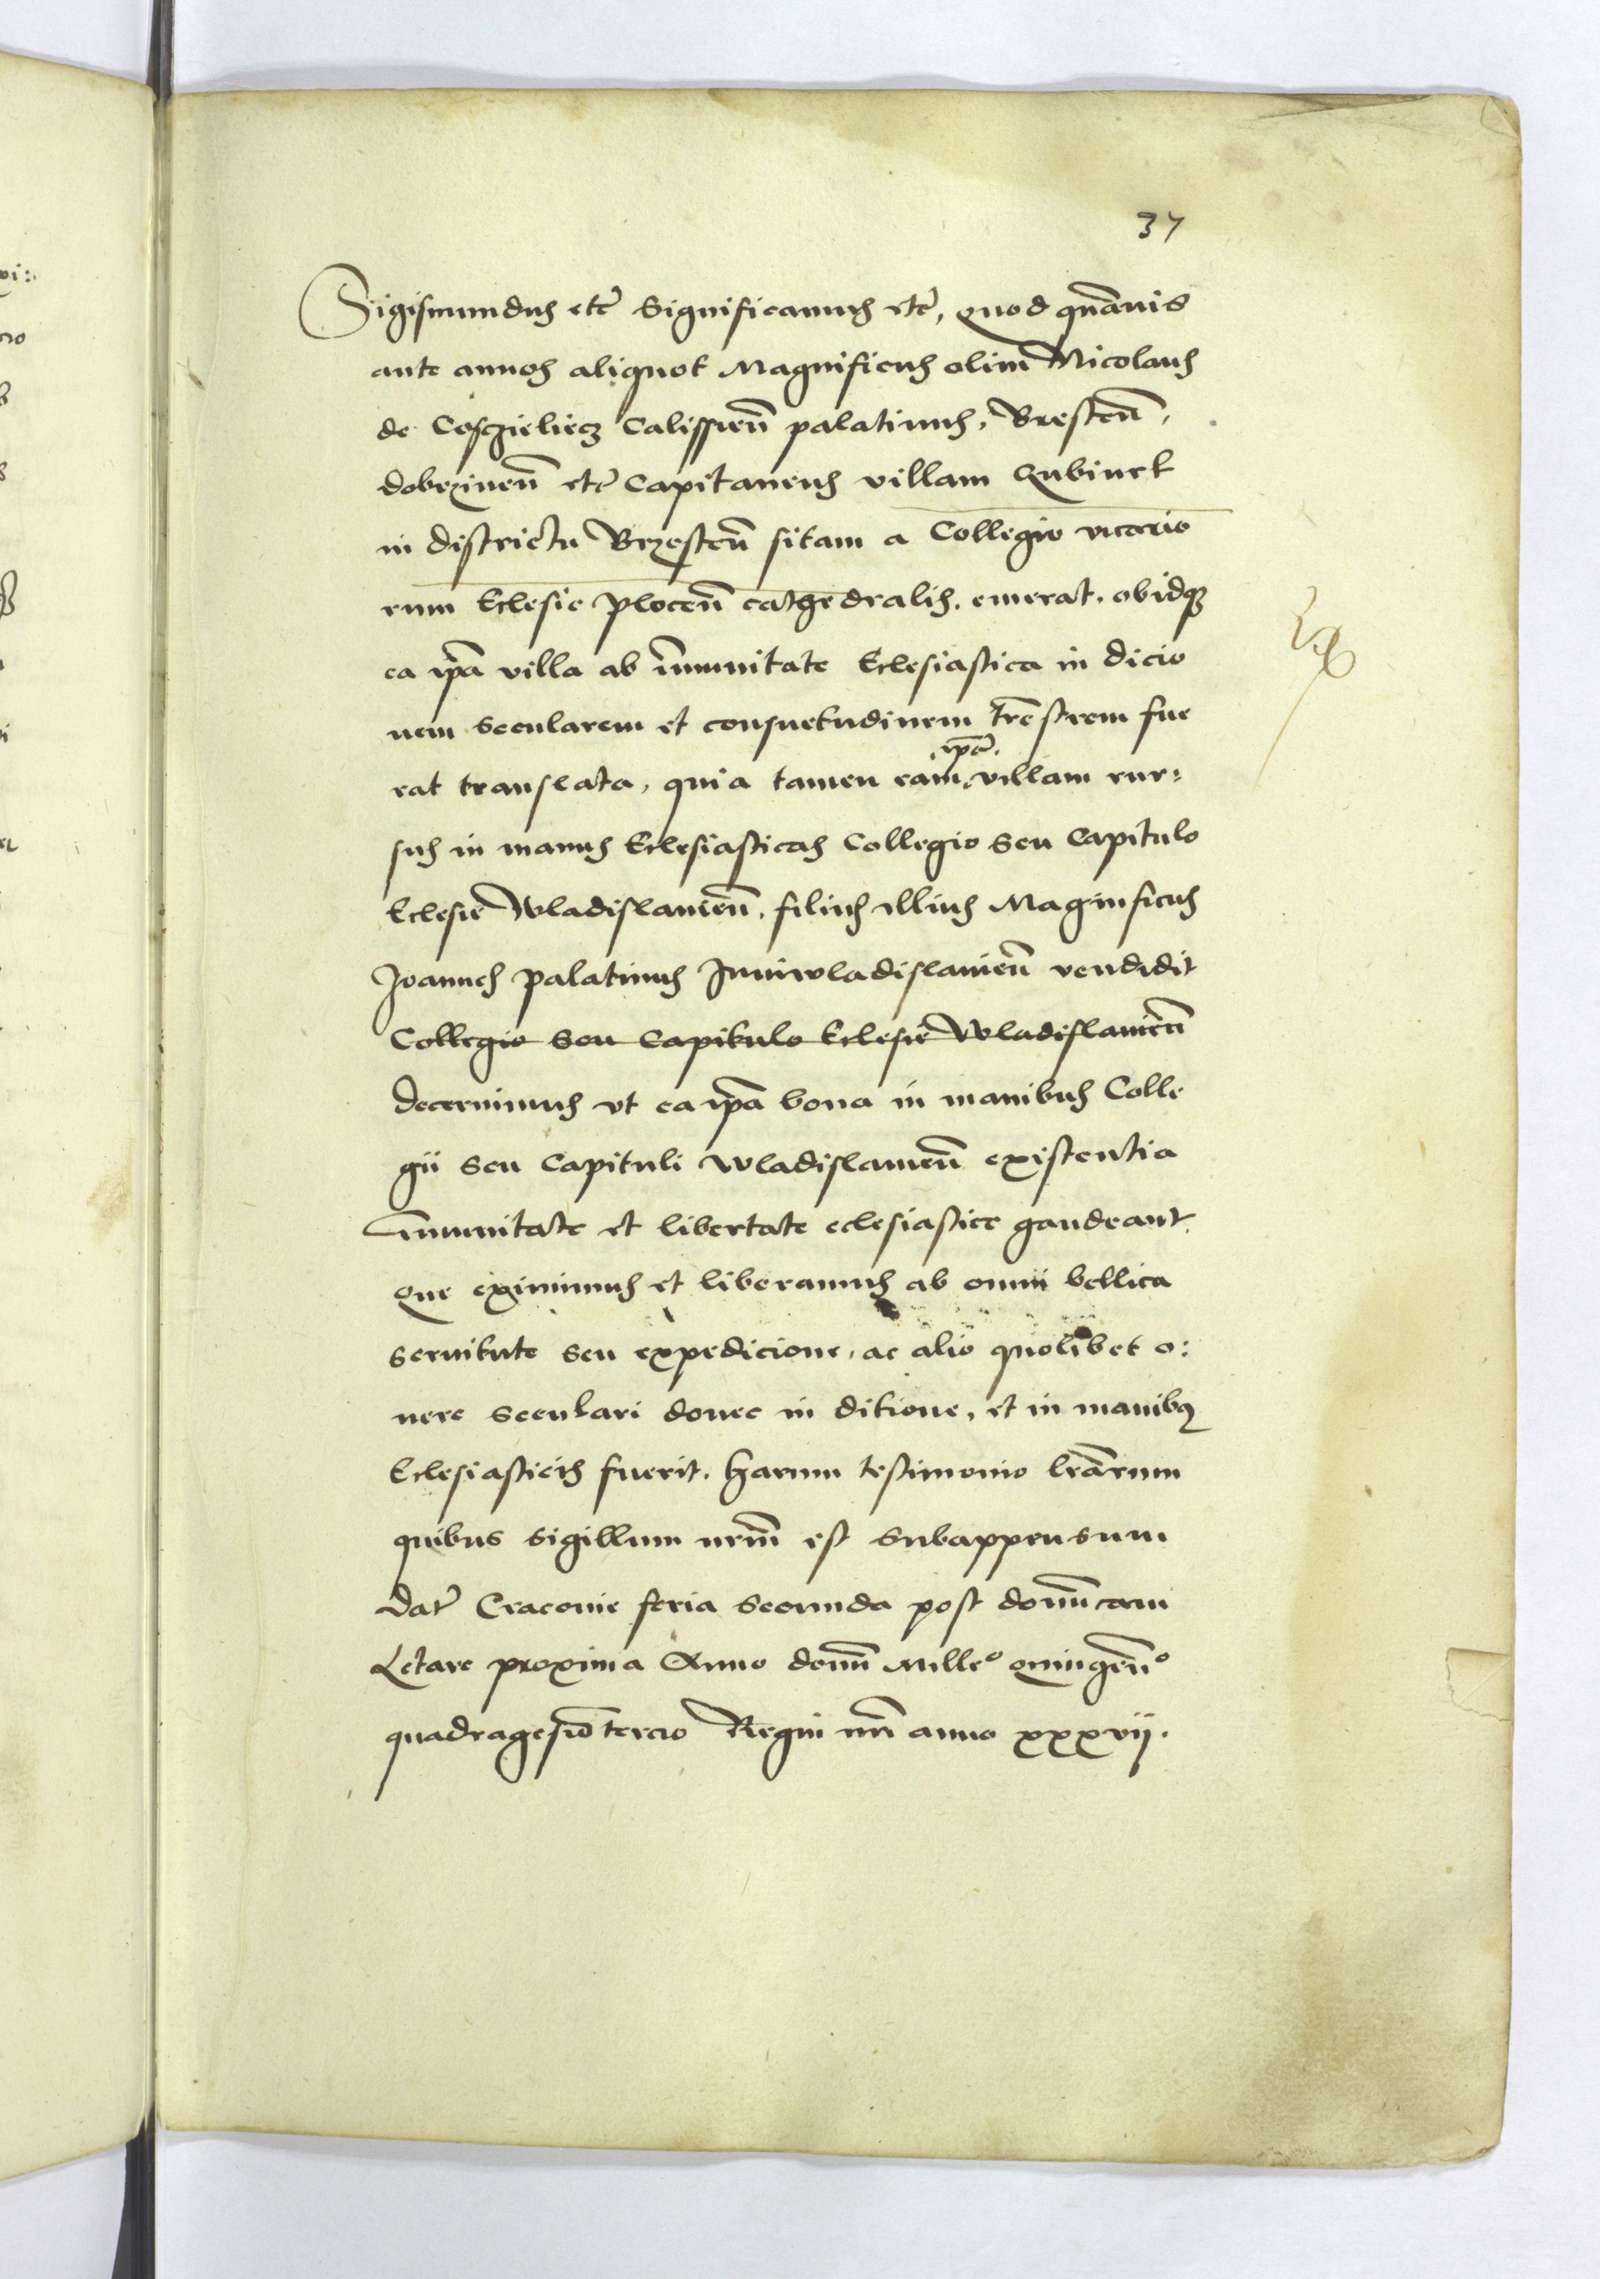 37
Sigismundus etc̄ Significamus etc̄, quod quāvis
ante annos aliquot Magnificus olim Nicolaus
de Cosczieliecz Calissieñ palatinus, Bresteñ,
dobrzineñ etc̄ Capitaneus villam Lubinek
in districtu Brzesteñ sitam a Collegio vicario
rum Eclesie ploceñ cathedralis. emerat. obidq3
ea ip̄a villa ab im̄unitate Eclesiastica in dicio
nem secularem et consuetudinem tr̄estrem fue
rat translata, quia tamen eam ip̄ā villam rur:
sus in manus Eclesiasticas Collegio seu Capitulo
Eclesie Wladislavieñ. filius illius Magnificus
Joannes palatinus Juniwladislavieñ vendidit
Collegio seu Capitulo Eclesie Wladislavieñ
decernimus vt ea ip̄a bona in manibus Colle
gii seu Capituli Wladislavieñ existentia
im̄unitate et libertate eclesiastice gaudeant
que eximimus et liberamus ab omni bellica
servitute seu expedicione, ac alio quolibet o:
nere seculari donec in ditione, et in manibq
Eclesiasticis fuerit. harum testimonio lr̄arum
quibus sigillum nrm̄ est subappensum
dat̄ Cracovie feria secunda post domīcam
Letare proxima Anno domī Milleº quingeñº
quadragesiō tercio Regni nr̄i anno xxxvij.